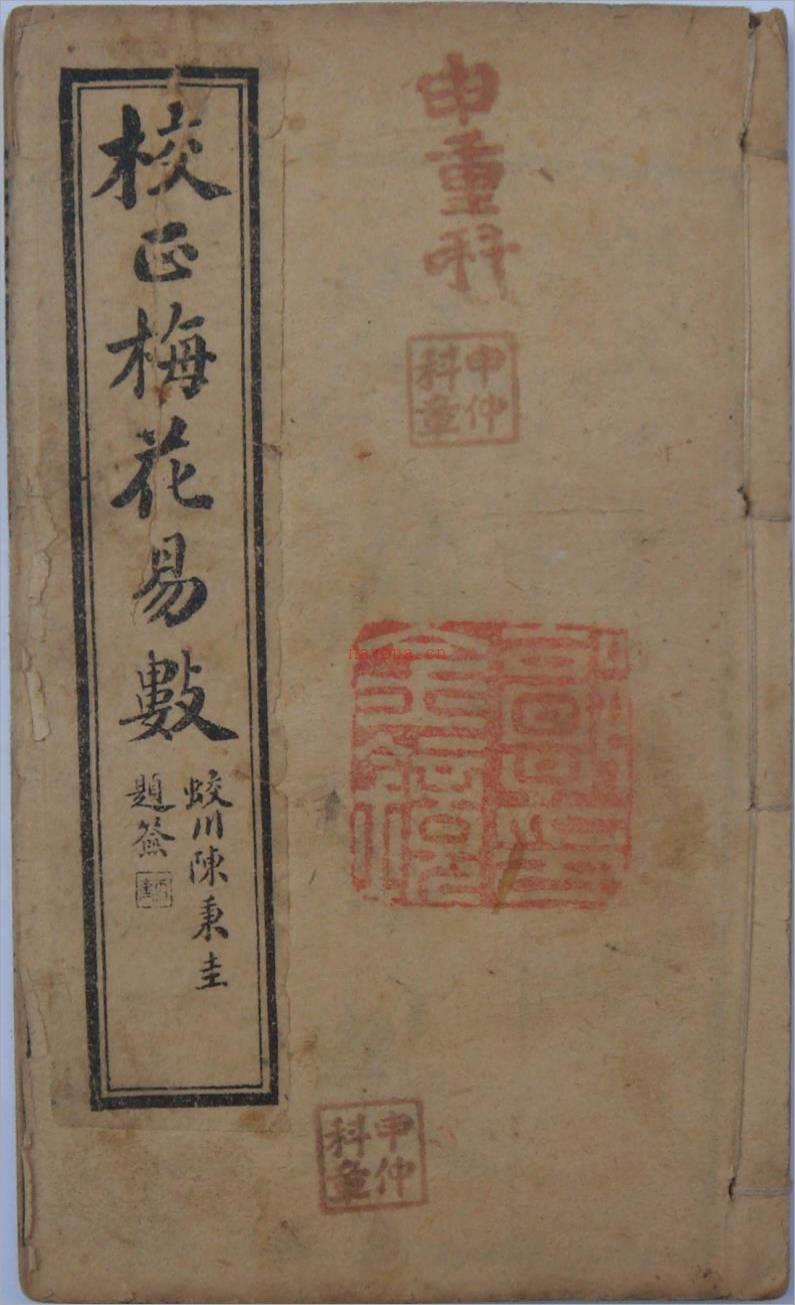 申重科
申仲
科章
校正梅花易數
蛟川陳秉圭
題簽
申仲
科章